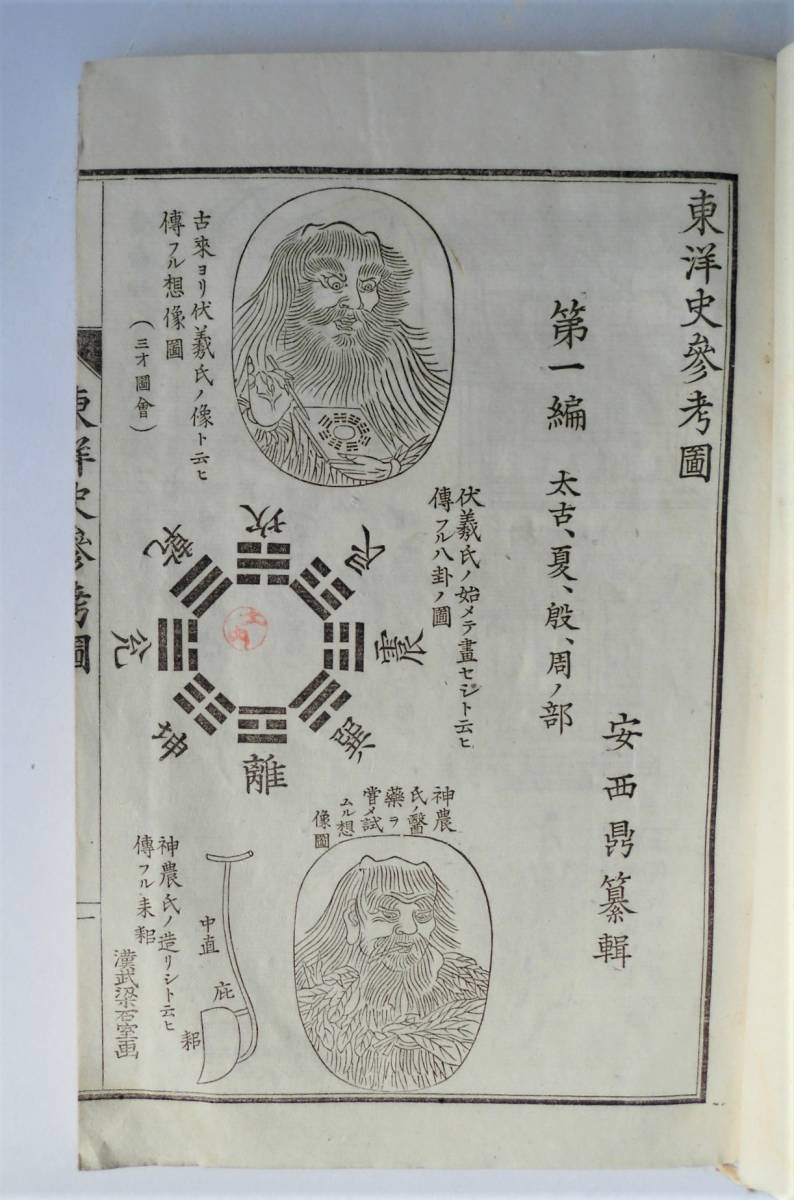 東洋史參考圖
安西鼎纂輯
第一編 太古、夏、殷、周ノ部
古來ヨリ伏羲氏ノ像ト云ヒ
傳フル想像圖
(三才圖會)
伏羲氏ノ始メテ畫セシト云ヒ
傳フル八卦ノ圖
坎
艮
震
巽
離
坤
兌
乾
神農
氏ノ醫
藥ヲ
嘗メ試
ムル想
像圖
神農氏ノ造リシト云ヒ
傳フル耒耜
漢武梁石室画
中直
庇
耜
東洋史參考圖
一